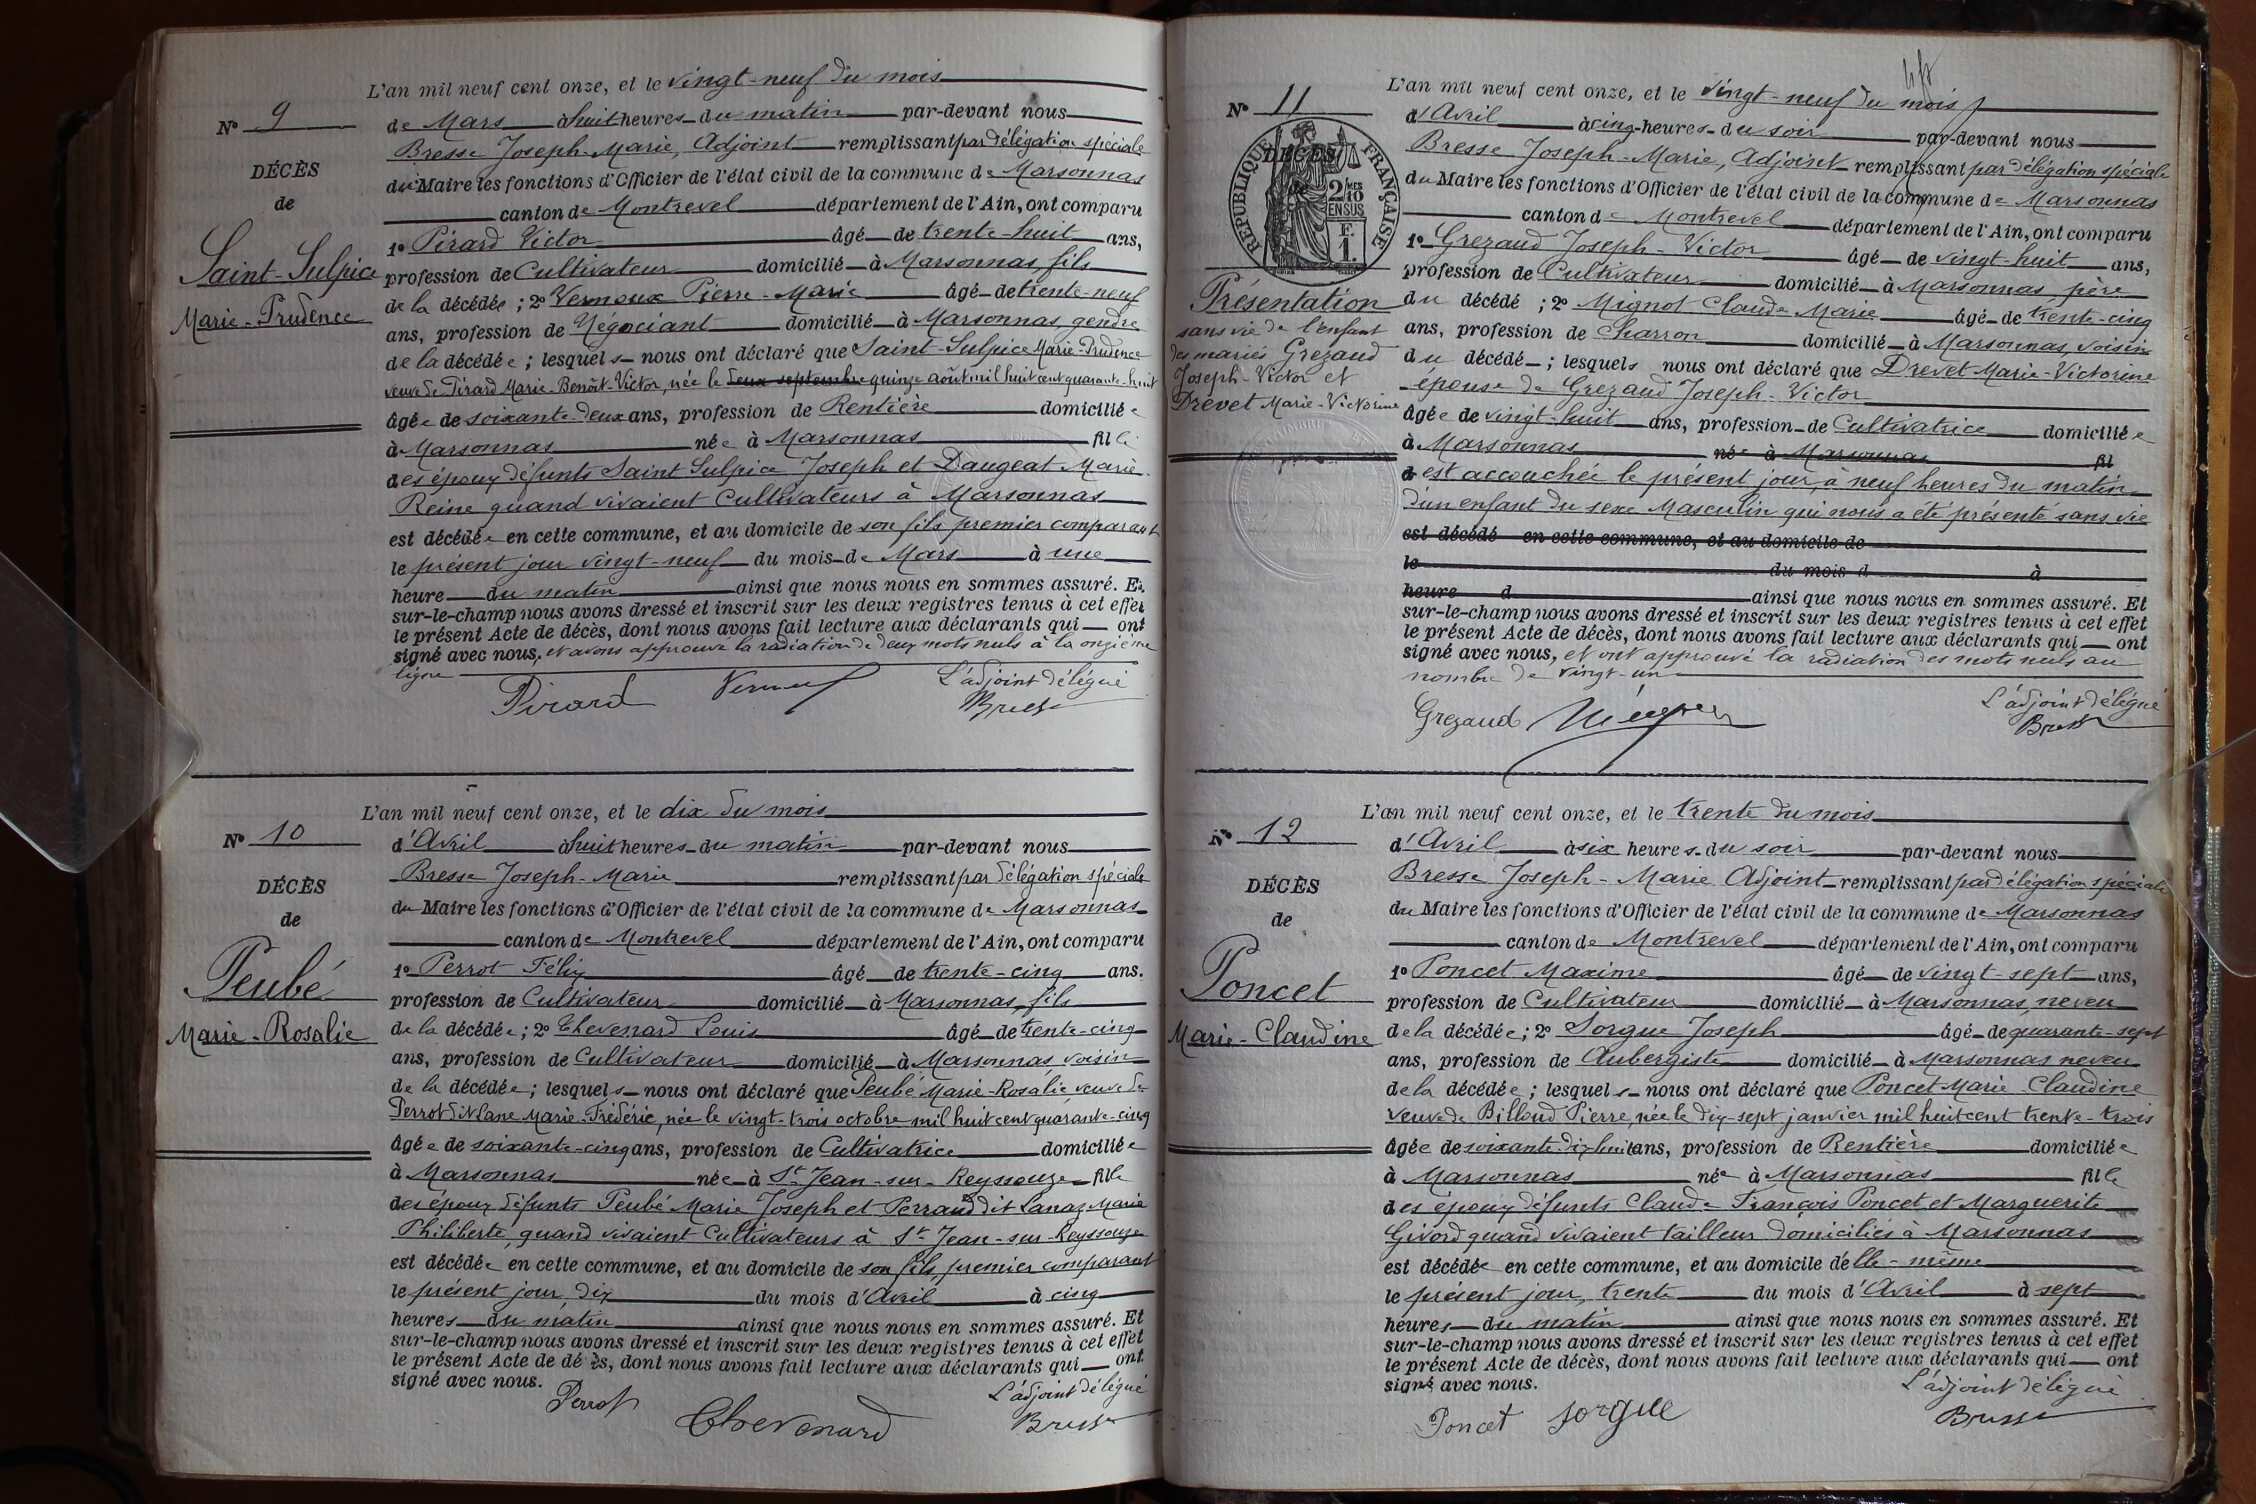 L'an mil neuf cent onze, et le vingt-neuf du mois
N° 9
de Mars à huit heures du matin par-devant nous
Bresse Joseph-Marie, Adjoint remplissant par délégation spéciale
DÉCÈS
du Maire les fonctions d'Officier de l'état civil de la commune de Marsonnas
de
canton de Montrevel département de l'Ain, ont comparu
1° Pirard Victor âgé de trente-huit ans,
Saint-Sulpice
profession de Cultivateur domicilié à Marsonnas, fils
de la décédée ; 2° Vernoux Pierre-Marie âgé de trente-neuf
Marie-Prudence
ans, profession de Négociant domicilié à Marsonnas, gendre
de la décédée ; lesquels nous ont déclaré que Saint-Sulpice Marie-Prudence
veuve de Pirard Marie-Benoît-Victor, née le deux septembre quinze août mil huit cent quarante-huit
âgée de soixante-deux ans, profession de Rentière domiciliée
à Marsonnas née à Marsonnas fille
des époux défunts Saint Sulpice Joseph et Daugeat Marie
Reine quand vivaient cultivateurs à Marsonnas
est décédée en cette commune, et au domicile de son fils premier comparant
le présent jour vingt-neuf du mois de Mars à une
heure du matin ainsi que nous nous en sommes assuré. Et
sur-le-champ nous avons dressé et inscrit sur les deux registres tenus à cet effet
le présent Acte de décès, dont nous avons fait lecture aux déclarants qui ont
signé avec nous, et avons approuvé la radiation de deux mots nuls à la onzième
ligne
L'adjoint délégué
Pirard Vernoux Bresse
L'an mil neuf cent onze, et le dix du mois
N° 10
d'Avril à huit heures du matin par-devant nous
Bresse Joseph-Marie remplissant par délégation spéciale
DÉCÈS
du Maire les fonctions d'Officier de l'état civil de la commune de Marsonnas
de
canton de Montrevel département de l'Ain, ont comparu
1° Perrot Félix âgé de trente-cinq ans.
Peubé
profession de Cultivateur domicilié à Marsonnas, fils
de la décédée ; 2° Thevenard Louis âgé de trente-cinq
Marie-Rosalie
ans, profession de Cultivateur domicilié à Marsonnas, voisin
de la décédée ; lesquels nous ont déclaré que Peubé Marie-Rosalie, veuve de
Perrot dit Lane Marie-Frédéric, née le vingt-trois octobre mil huit cent quarante-cinq
âgée de soixante-cinq ans, profession de Cultivatrice domiciliée
à Marsonnas née à St Jean-sur-Reyssouze fille
des époux défunts Peubé Marie Joseph et Perraud dit Lanaz Marie
Philiberte, quand vivaient cultivateurs à St Jean-sur-Reyssouze
est décédée en cette commune, et au domicile de son fils, premier comparant
le présent jour, dix du mois d'Avril à cinq
heures du matin ainsi que nous nous en sommes assuré. Et
sur-le-champ nous avons dressé et inscrit sur les deux registres tenus à cet effet
le présent Acte de décès, dont nous avons fait lecture aux déclarants qui ont
signé avec nous.
L'adjoint délégué
Perrot Thevenard Bresse
L'an mil neuf cent onze, et le vingt-neuf du mois
N° 11
d'Avril à cinq heures du soir par-devant nous
Bresse Joseph-Marie, Adjoint remplissant par délégation spéciale
DÉCÈS
RÉPUBLIQUE FRANÇAISE
2/10 MES EN SUS
F. 1.
du Maire les fonctions d'Officier de l'état civil de la commune de Marsonnas
canton de Montrevel département de l'Ain, ont comparu
1° Grezaud Joseph-Victor âgé de vingt-huit ans,
profession de Cultivateur domicilié à Marsonnas, père
Présentation
sans vie de l'enfant
des mariés Grezaud
Joseph-Victor et
Drevet Marie-Victorine
du décédé ; 2° Mignot Claude Marie âgé de trente-cinq
ans, profession de Charron domicilié à Marsonnas, voisin
du décédé ; lesquels nous ont déclaré que Drevet Marie-Victorine
épouse de Grezaud Joseph-Victor
âgée de vingt-huit ans, profession de Cultivatrice domiciliée
à Marsonnas née à Marsonnas fil
est accouchée le présent jour, à neuf heures du matin
d'un enfant du sexe Masculin qui nous a été présenté sans vie
est décédé en cette commune, et au domicile de
le du mois d à
heure d ainsi que nous nous en sommes assuré. Et
sur-le-champ nous avons dressé et inscrit sur les deux registres tenus à cet effet
le présent Acte de décès, dont nous avons fait lecture aux déclarants qui ont
signé avec nous, et ont approuvé la radiation des mots nuls au
nombre de vingt-un
L'adjoint délégué
Grezaud Bresse
L'an mil neuf cent onze, et le trente du mois
N° 12
d'Avril à six heures du soir par-devant nous
Bresse Joseph-Marie Adjoint remplissant par délégation spéciale
DÉCÈS
du Maire les fonctions d'Officier de l'état civil de la commune de Marsonnas
de
canton de Montrevel département de l'Ain, ont comparu
1° Poncet Maxime âgé de vingt-sept ans,
Poncet
profession de Cultivateur domicilié à Marsonnas, neveu
de la décédée ; 2° Sorgue Joseph âgé de quarante-sept
Marie-Claudine
ans, profession de Aubergiste domicilié à Marsonnas neveu
de la décédée ; lesquels nous ont déclaré que Poncet Marie Claudine
veuve de Billoud Pierre, née le dix-sept janvier mil huit cent trente-trois
âgée de soixante-dix-huit ans, profession de Rentière domiciliée
à Marsonnas née à Marsonnas fille
des époux défunts Claude François Poncet et Marguerite
Givord quand vivaient tailleur domiciliés à Marsonnas
est décédée en cette commune, et au domicile d'elle-même
le présent jour, trente du mois d'Avril à sept
heures du matin ainsi que nous nous en sommes assuré. Et
sur-le-champ nous avons dressé et inscrit sur les deux registres tenus à cet effet
le présent Acte de décès, dont nous avons fait lecture aux déclarants qui ont
signé avec nous.
L'adjoint délégué
Poncet Sorgue Bresse